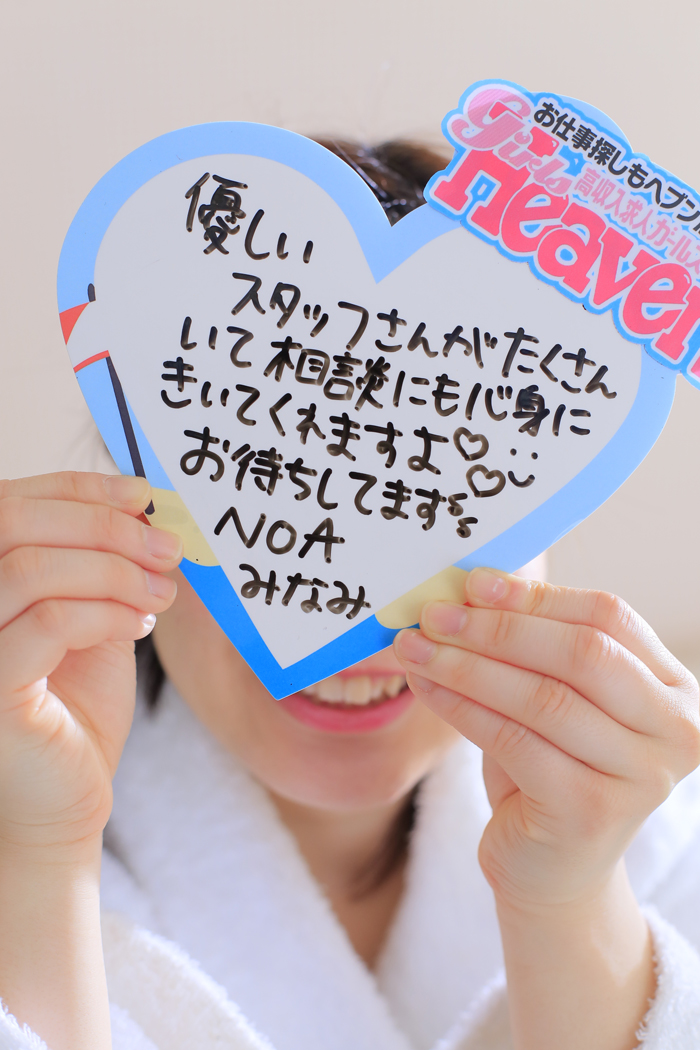 お仕事探しもヘブン
高収入求人ガールズ
Girls
Heaven
優しい
スタッフさんがたくさん
いて相談にも心身に
きいてくれますよ♡
お待ちしてます♡
NOA
みなみ